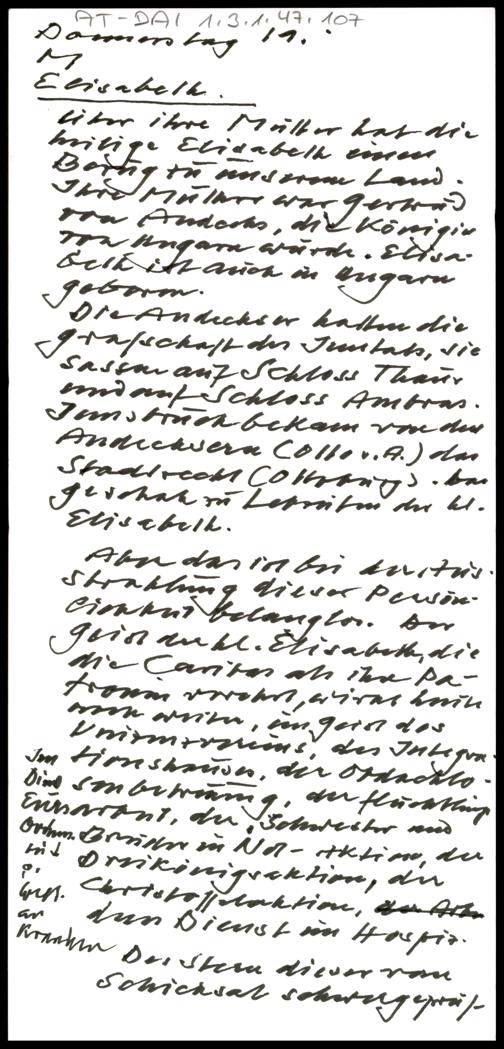 AT-DAI 1.3.1.47.107
Donnerstag 19.
M
Elisabeth.
Über ihre Mutter hat die
heilige Elisabeth einen
Bezug zu unserem Land.
Ihre Mutter war Gertrud
von Andechs, die Königin
von Ungarn wurde. Elisa-
beth ist auch in Ungarn
geboren.
Die Andechser hatten die
Grafschaft des Inntals, sie
sassen auf Schloss Thaur
und auf Schloss Ambras.
Innsbruck bekam von den
Andechsern (Otto v. A.) das
Stadtrecht (Ottoburg). Das
geschah zu Lebzeiten der hl.
Elisabeth.
Aber das ist bei der Aus-
strahlung dieser Persön-
lichkeit belanglos. Der
Geist der hl. Elisabeth, die
die Caritas als ihre Pa-
tronin verehrt, wirkt heute
noch weiter, im Geist des
des Integra-
tionshauses, der Obdachlo-
senbetreuung, der Flüchtlings
der, Schwester und
Bruder in Not-Aktion, der
Dreikönigsaktion, der
Christoffelaktion,
dem Dienst im Hospiz.
Im
Dienst
Ordens
an
Kranken
Der Stern dieser vom
Schicksal schwergeprüf-